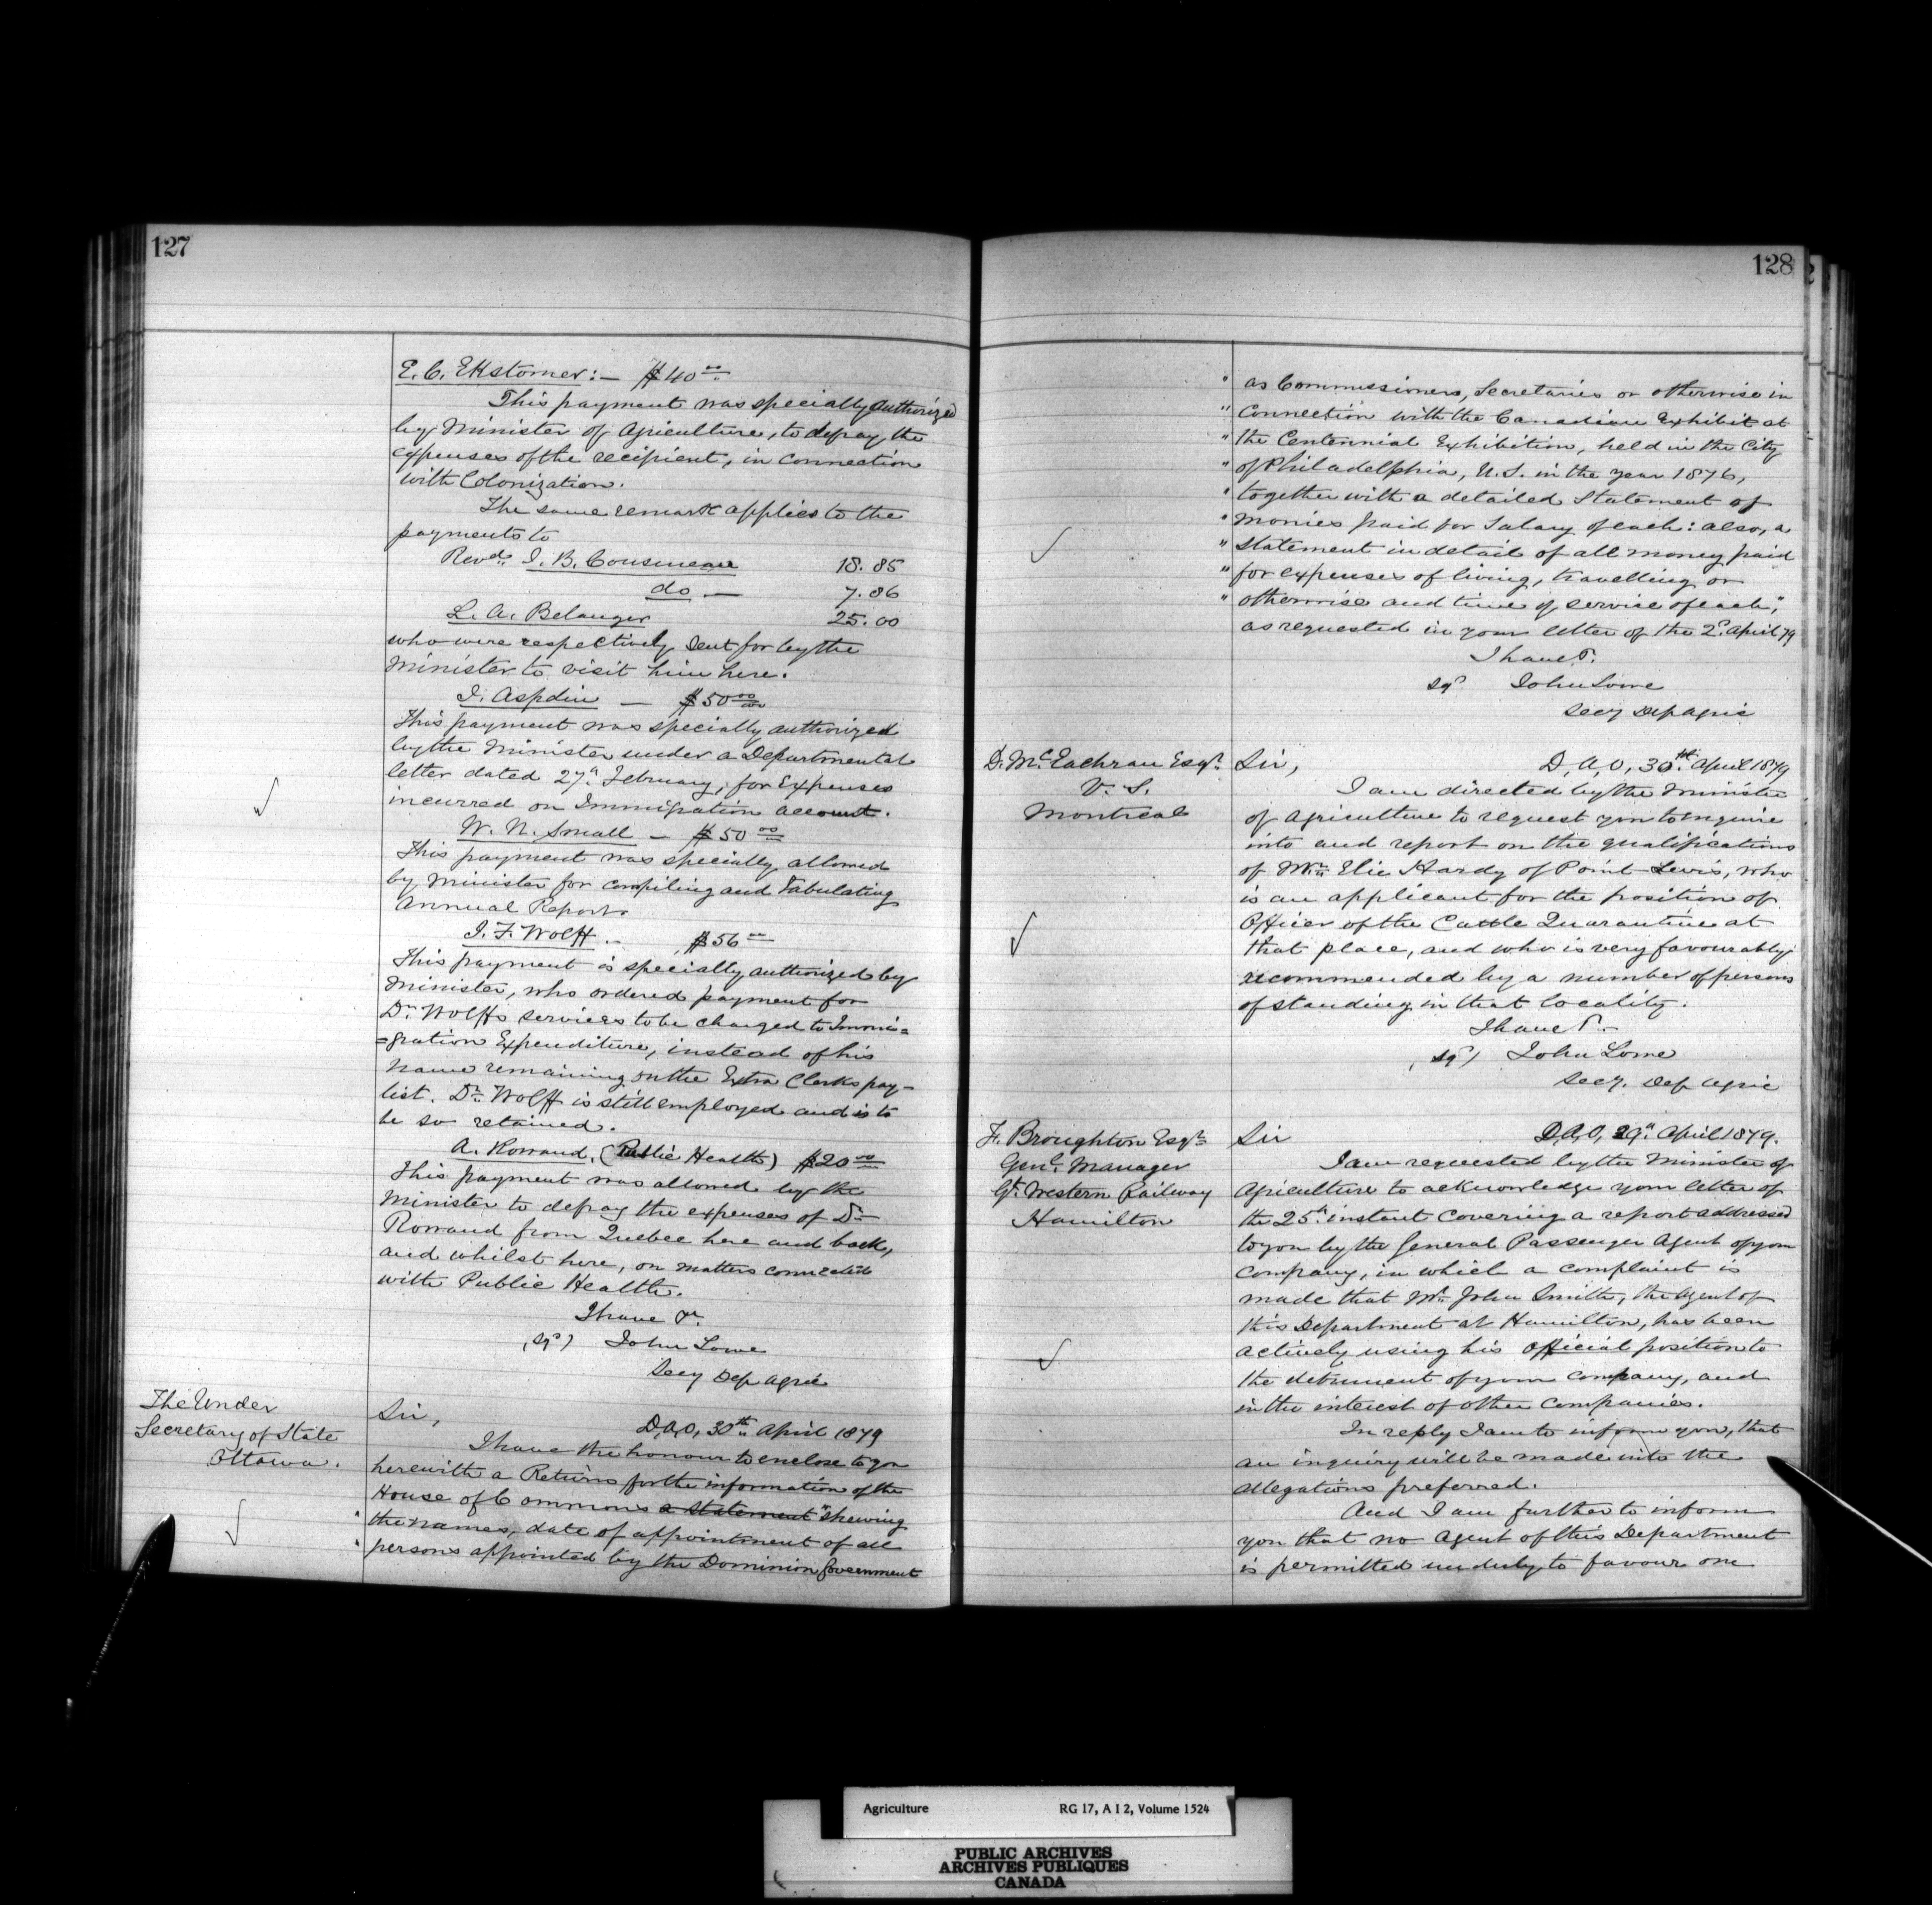 127
E. C. Ekstomer:— $40.00
This payment was specially authorized
by Minister of Agriculture, to defray the
expenses of the recipient, in connection
with Colonization.
The same remark applies to the
payments to
Revd. J. B. Cousineau 18.85
do — 7.86
L. A. Belanger 25.00
who were respectively sent for by the
Minister to visit him here.
J. Aspdin — $50.00
This payment was specially authorized
by the Minister under a Departmental
letter dated 27th February, for Expenses
incurred on Immigration account.
W. N. Small — $50.00
This payment was specially allowed
by Minister for compiling and Tabulating
Annual Report.
J. F. Wolff — $56.00
This payment is specially authorized by
Minister, who ordered payment for
Dr. Wolff's services to be charged to Immi=
=gration Expenditure, instead of his
name remaining on the Extra Clerks pay-
list. Dr. Wolff is still employed and is to
be so retained.
A. Rowand, (Public Health) $20.00
This payment was allowed by the
Minister to defray the expenses of Dr.
Rowand from Quebec here and back,
and whilst here, on matters connected
with Public Health.
I have &c.
(sgd) John Lowe
Secy Dep Agric
The Under
Secretary of State
Ottawa.
Sir,
D, A, O, 30th April 1879
I have the honour to enclose to you
herewith a Return for the information of the
House of Commons a Statement "shewing
" the names, date of appointment of all
" persons appointed by the Dominion Government
128
" as Commissioners, Secretaries or otherwise in
" connection with the Canadian Exhibit at
" the Centennial Exhibition, held in the City
" of Philadelphia, U.S. in the year 1876,
" together with a detailed Statement of
" monies paid for Salary of each: also, a
" statement in detail of all money paid
" for expenses of living, travelling or
" otherwise and time of service of each",
as requested in your letter of the 2d. April 79
I have &c.
sgd John Lowe
Secy Dep Agric
D. McEachran Esqr.
V. S.
Montreal
Sir,
D, A, O, 30th April 1879
I am directed by the Minister
of Agriculture to request you to enquire
into and report on the qualifications
of Mr. Elie Hardy of Point Levis, who
is an applicant for the position of
Officer of the Cattle Quarantine at
that place, and who is very favourably
recommended by a number of persons
of standing in that locality.
I have &c.
(sgd) John Lowe
Secy. Dep Agric
F. Broughton Esqr.
Genl. Manager
Gt. Western Railway
Hamilton
Sir
D, A, O, 29th April 1879.
I am requested by the Minister of
Agriculture to acknowledge your letter of
the 25th instant covering a report addressed
to you by the General Passenger Agent of your
company, in which a complaint is
made that Mr. John Smith, the agent of
this Department at Hamilton, has been
actively using his official position to
the detriment of your company, and
in the interest of other companies.
In reply I am to inform you, that
an inquiry will be made into the
allegations preferred.
And I am further to inform
you that no agent of this Department
is permitted unduly to favour one
Agriculture RG 17, A I 2, Volume 1524
PUBLIC ARCHIVES
ARCHIVES PUBLIQUES
CANADA